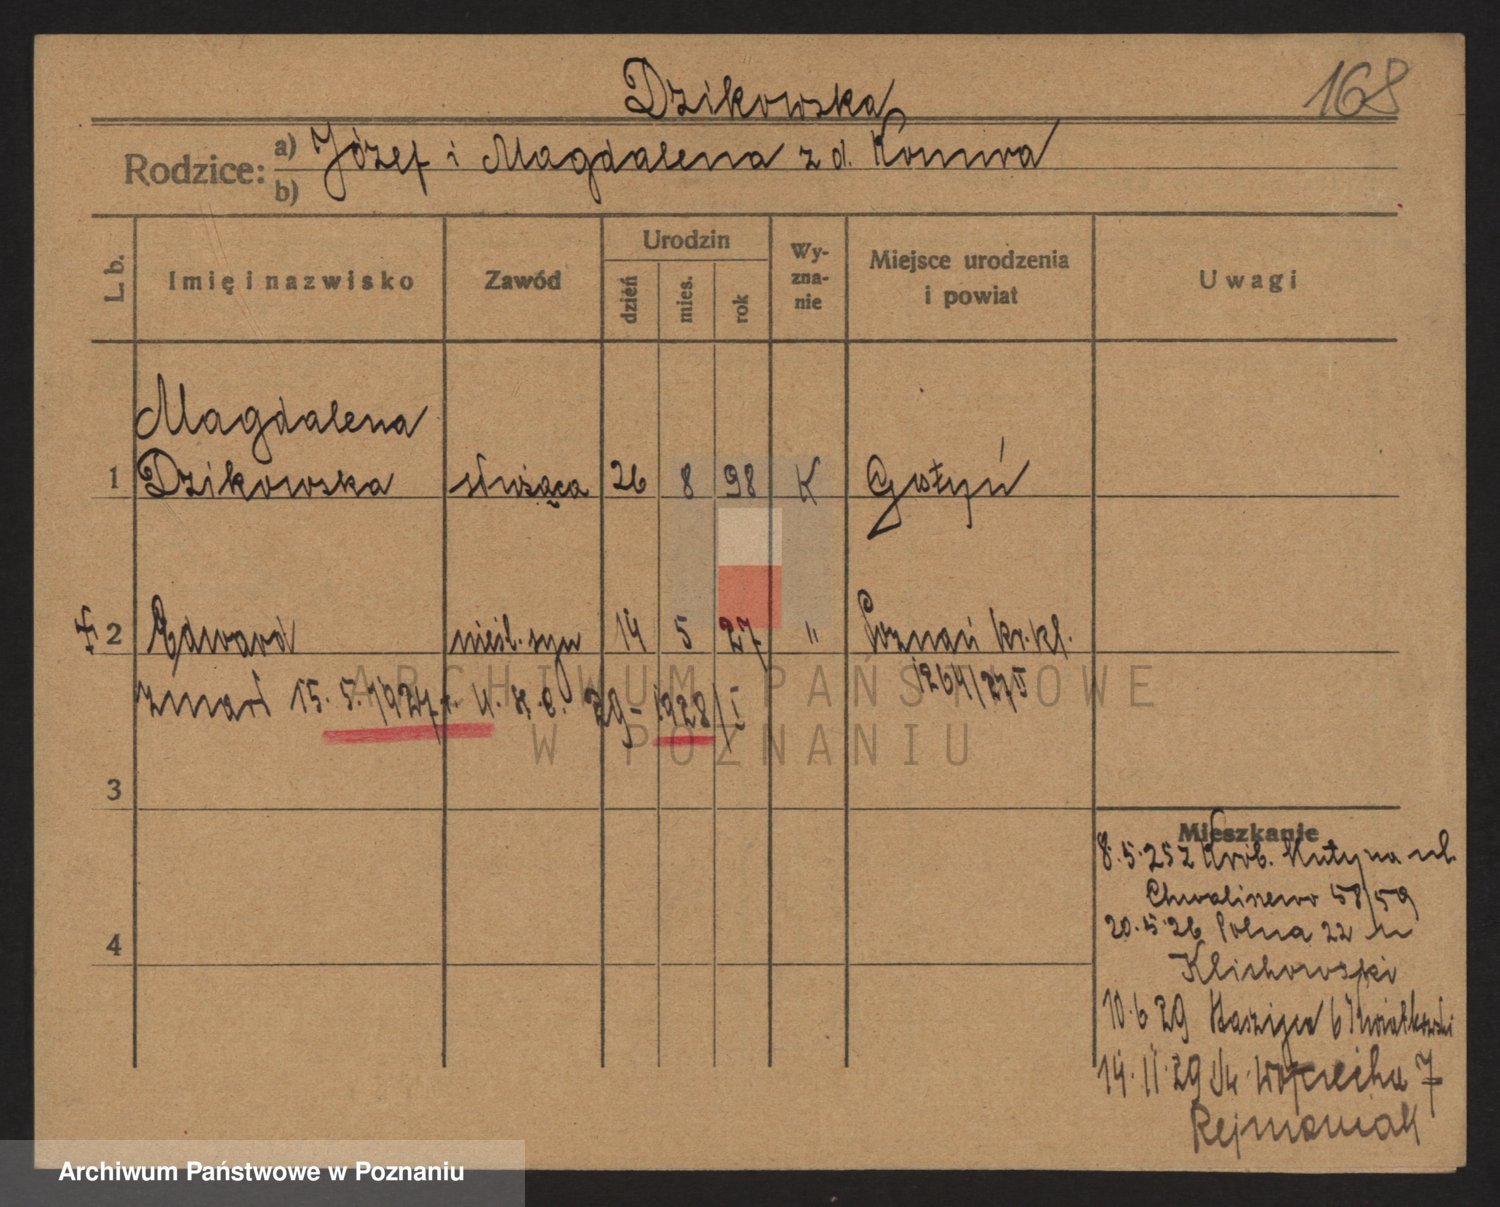 Dzikowska
168
Rodzice: a) Józef i Magdalena z d.
b)
L. b.
Imię i nazwisko
Zawód
Urodzin
dzień
mies.
rok
Wy-
zna-
nie
Miejsce urodzenia
i powiat
Uwagi
Magdalena
1 Dzikowska służąca 26 8 98 K Gostyń
2 Edward nieśl. syn 14 5 27 " Poznań
1264/27
zmarł 15.5.1927 r. 29-1928/I
3
4
Mieszkanie
8.5.25 Krob.
58/59
20.5.26 Polna 22 u
Klichowski
10.6 29 6
14.11.29 Św. Wojciecha 7
Rejmaniak
ARCHIWUM PAŃSTWOWE
W POZNANIU
Archiwum Państwowe w Poznaniu